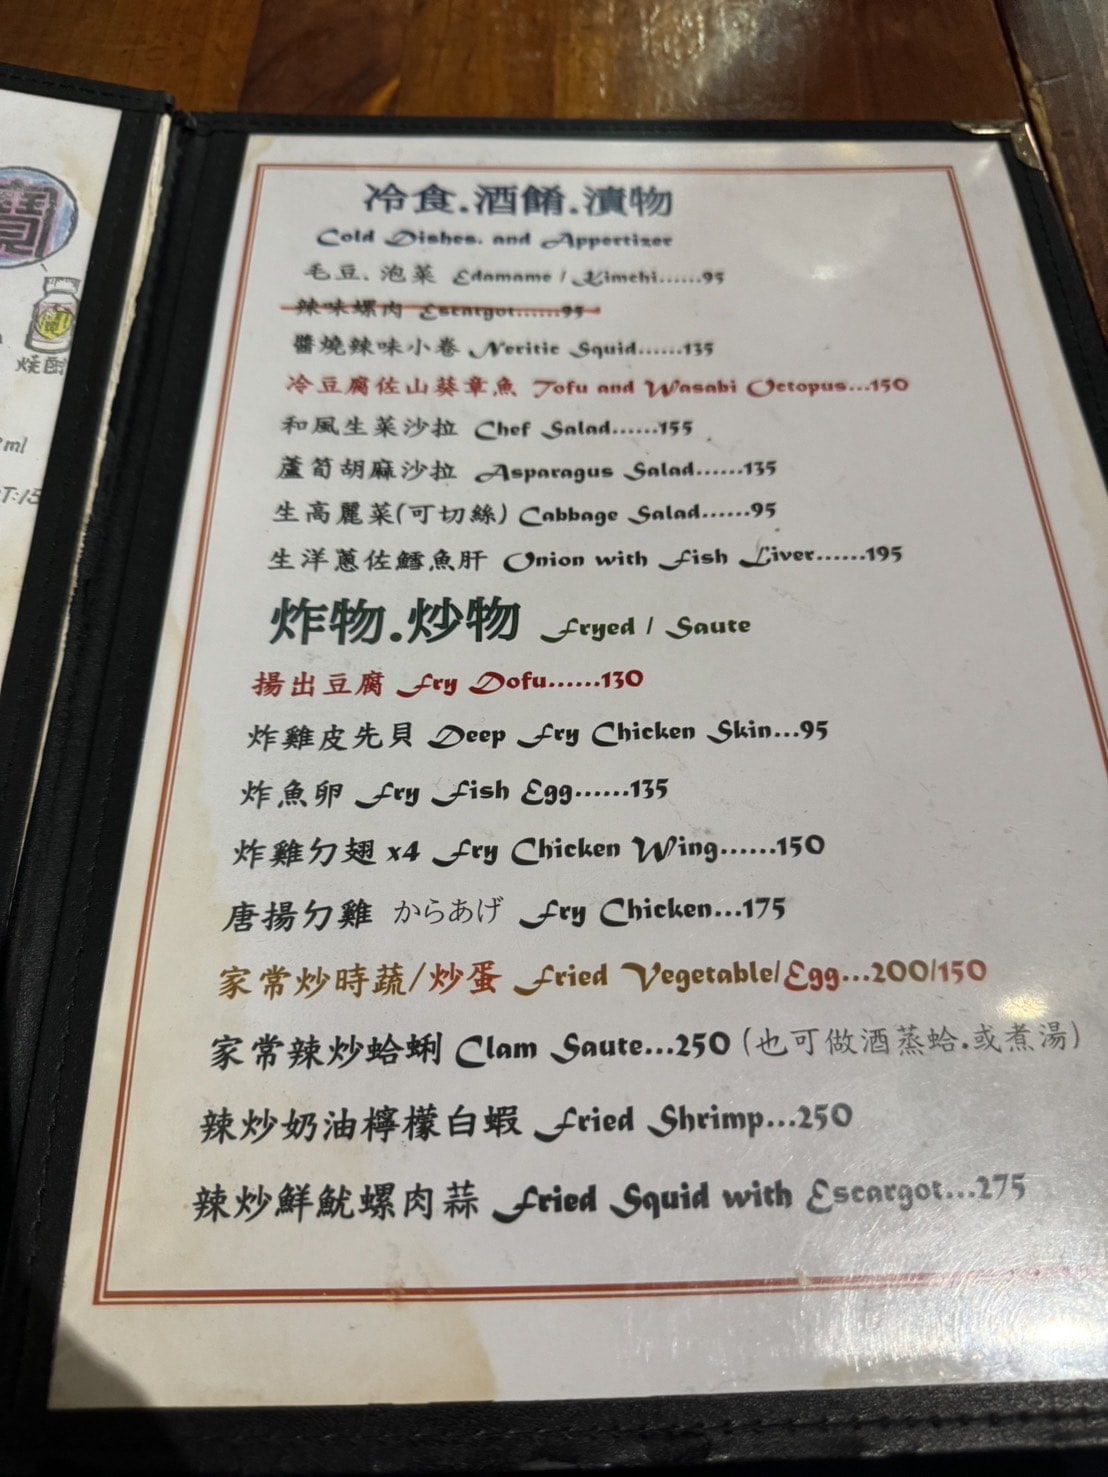 寶
燒酎
ml
T:15
冷食.酒餚.漬物
Cold Dishes. and Appertizer
毛豆. 泡菜 Edamame / Kimchi......95
辣味螺肉 Escargot......95
醬燒辣味小卷 Neritic Squid......135
冷豆腐佐山葵章魚 Tofu and Wasabi Octopus...150
和風生菜沙拉 Chef Salad......155
蘆筍胡麻沙拉 Asparagus Salad......135
生高麗菜(可切絲) Cabbage Salad......95
生洋蔥佐鱈魚肝 Onion with Fish Liver......195
炸物.炒物 Fryed / Saute
揚出豆腐 Fry Dofu......130
炸雞皮先貝 Deep Fry Chicken Skin...95
炸魚卵 Fry Fish Egg......135
炸雞勿翅 x4 Fry Chicken Wing......150
唐揚勿雞 からあげ Fry Chicken...175
家常炒時蔬/炒蛋 Fried Vegetable/Egg...200/150
家常辣炒蛤蜊 Clam Saute...250 (也可做酒蒸蛤.或煮湯)
辣炒奶油檸檬白蝦 Fried Shrimp...250
辣炒鮮魷螺肉蒜 Fried Squid with Escargot...275